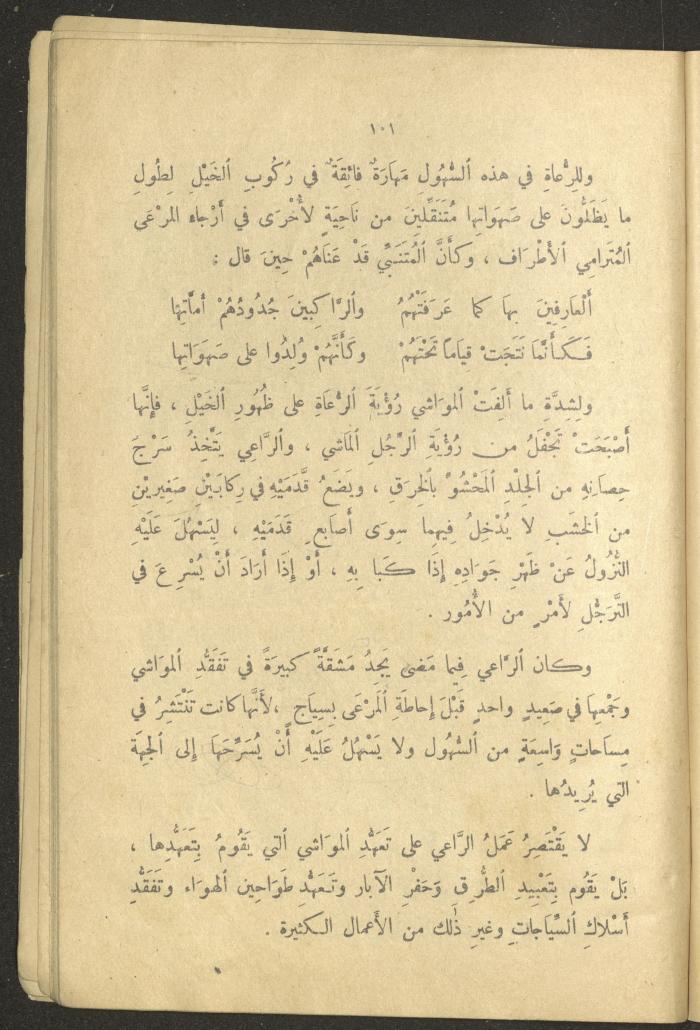 ١٠١
وللرُّعاةِ في هذه ٱلسُّهُول مَهارَةٌ فائِقَةٌ في رُكُوبِ ٱلخَيْلِ لِطُولِ
ما يَظَلُّونَ على صَهَواتِها مُتَنَقِّلِينَ من ناحِيَةٍ لأُخْرَى في أَرْجاء المَرْعَى
ٱلمُتَرامِي ٱلأَطْرَاف ، وكأَنَّ ٱلمُتَنَبِّي قَدْ عَناهُمْ حِينَ قال :
أَلعارِفِينَ بِها كما عَرَفَتْهُمُ     وٱلرَّاكِبينَ جُدُودُهُمْ أُمَّاتِها
فَكَأَنَّما نَتَجَتْ قِياماً تَحْتَهُمْ     وكَأَنَّهُمْ وُلِدُوا على صَهَوَاتِها
ولِشِدَّةِ ما أَلِفَتْ ٱلموَاشي رُؤْيَةَ ٱلرُّعاةِ على ظُهُورِ ٱلخَيْلِ ، فإِنَّها
أَصْبَحَتْ تَجْفَلُ من رُؤْيَةِ ٱلرَّجُلِ ٱلمَاشي ، وٱلرَّاعِي يَتَّخِذُ سَرْجَ
حِصانِهِ من ٱلجِلْدِ ٱلمَحْشُوِّ بٱلخِرَقِ ، ويَضَعُ قَدَمَيْهِ في رِكابَيْنِ صَغِيرَيْنِ
من ٱلخشَبِ لا يُدْخِلُ فِيهِما سِوَى أَصابعِ قَدَمَيْهِ ، لِيَسْهُلَ عَلَيْهِ
النُّزُولُ عَنْ ظَهْرِ جَوَادِهِ إِذَا كَبا بِهِ ، أَوْ إِذَا أَرَادَ أَنْ يُسْرِعَ في
التَّرَجُّلِ لأَمْرٍ من الأُمُور .
وكان ٱلرَّاعي فِيما مَضَى يَجِدُ مَشَقَّةً كبيرَةً في تَفَقُّدِ ٱلموَاشي
وجَمْعِها في صَعِيدٍ واحدٍ قَبْلَ إِحاطَةِ ٱلمَرْعَى بِسِياجٍ ، لأَنَّها كانت تَنْتَشِرُ في
مِساحاتٍ وَاسِعَةٍ من ٱلسُّهُول ولا يَسْهُلُ عَلَيْهِ أَنْ يُسَرِّحَها إِلى ٱلجِهَةِ
التي يُرِيدُها .
لا يَقْتَصِرُ عَمَلُ الرَّاعي على تَعَهُّدِ ٱلموَاشي ٱلتي يَقُومُ بِتَعَهُّدِها ،
بَلْ يَقُوم بِتَعْبِيدِ ٱلطُّرُقِ وَحَفْرِ ٱلآبار وتَعَهُّدِ طَوَاحين ٱلهوَاء وتَفَقُّدِ
أَسْلاكِ ٱلسِّياجاتِ وغيرِ ذٰلك من الأَعمال الكثيرة .